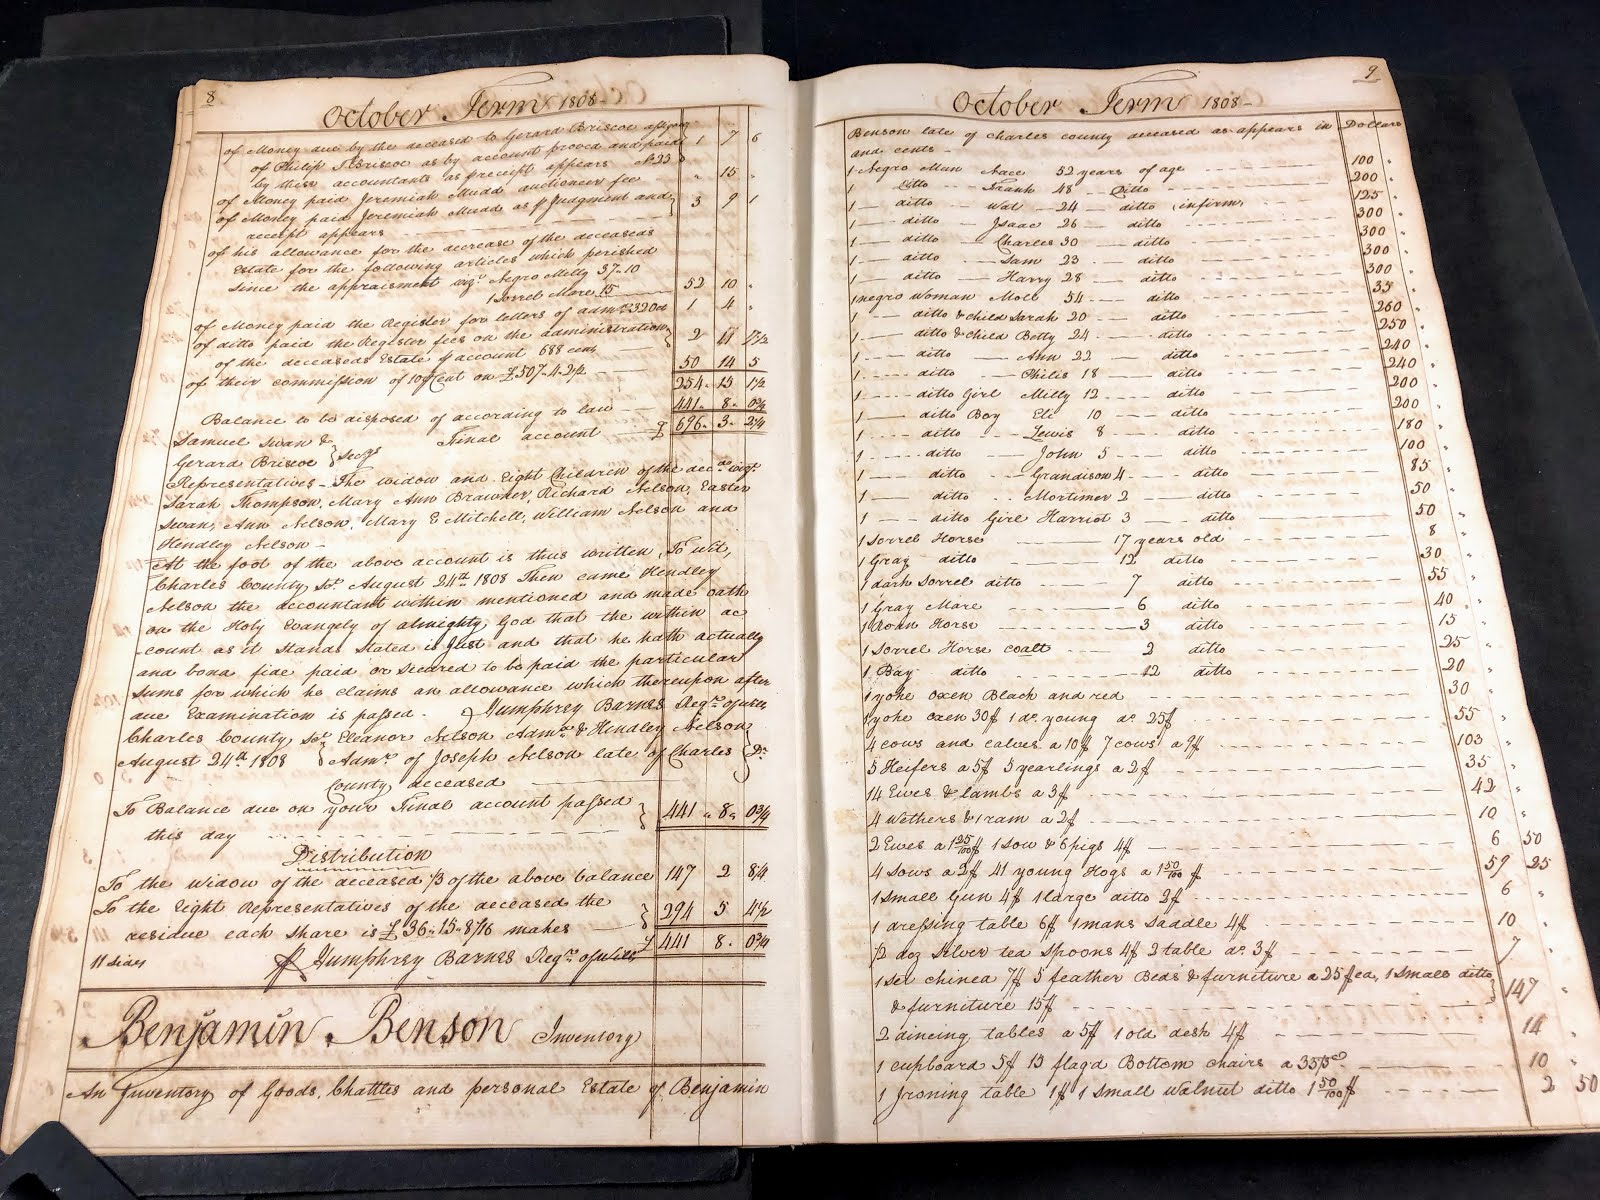 8
October Term 1808
of Money due by the deceased to Gerard Briscoe
of Philip T. Briscoe as by account proved and paid 1 7 6
by these accountants as receipt appears No 23
of Money paid Jeremiah Mudd auctioneer fee " 15 "
of Money paid Jeremiah Mudd as Judgment and 3 9 1
accept appears
of his allowance for the decrease of the deceaseds
Estate for the following articles which perished
since the appraisment viz. Negro Milly 37.10
1 Sorrel Mare 15 52 10 "
of Money paid the Register for letters of admn 320 1 4 "
of ditto paid the Register fees on the administration 2 11 7½
of the deceaseds Estate account 688 cents
of their commission of 10 Cent on £507.4.2½ 50 14 5
254. 15 1½
Balance to be disposed of according to law 441. 8. 0¾
Samuel Swan & Final account £ 696. 3. 2¼
Gerard Briscoe } Secys
Representatives - The widow and Eight Children of the decd vizt
Sarah Thompson, Mary Ann Brawner, Richard Nelson, Easter
Swan, Ann Nelson, Mary E Mitchell, William Nelson and
Hendley Nelson -
At the foot of the above account is thus written, To wit,
Charles County Sct August 24th 1808 Then came Hendley
Nelson the accountant within mentioned and made oath
on the Holy Evangely of almighty God that the within ac
count as it stands stated is Just and that he hath actually
and bona fide paid or secured to be paid the particular
sums for which he claims an allowance which thereupon after
due Examination is passed. Humphrey Barnes Regr of wills
Charles County Sct Eleanor Nelson Admx & Hendley Nelson
August 24th 1808 Admr of Joseph Nelson late of Charles Dr
County deceased
To Balance due on your Final account passed
this day 441 " 8 " 0¾
Distribution
To the widow of the deceased 1/3 of the above balance 147 2 8¼
To the Eight Representatives of the deceased the
residue each share is £36.15.8 7/16 makes 294 5 4½
£ 441 8. 0¾
11 sides Humphrey Barnes Regr of wills
Benjamin Benson Inventory
An Inventory of Goods, Chattles and personal Estate of Benjamin
9
October Term 1808
Benson late of Charles county deceased as appears in Dollars
and cents
1 Negro Man Nace 52 years of age 100 "
1 ditto Frank 48 ditto 200
1 ditto Wat 24 ditto infirm 125
1 ditto Isaac 26 ditto 300
1 ditto Charles 30 ditto 300
1 ditto Sam 23 ditto 300
1 ditto Harry 28 ditto 300
1 negro Woman Moll 54 ditto 35
1 ditto & child Sarah 20 ditto 260
1 ditto & child Betty 24 ditto 250
1 ditto Ann 22 ditto 240
1 ditto Philis 18 ditto 240
1 ditto Girl Milly 12 ditto 200
1 ditto Boy Eli 10 ditto 200
1 ditto Lewis 8 ditto 180
1 ditto John 5 ditto 100
1 ditto Grandison 4 ditto 85
1 ditto Mortimer 2 ditto 50
1 ditto Girl Harriot 3 ditto 50
1 Sorrel Horse 17 years old 8
1 Gray ditto 12 ditto 30
1 dark Sorrel ditto 7 ditto 55
1 Gray Mare 6 ditto 40
1 Roan Horse 3 ditto 15
1 Sorrel Horse coalt 2 ditto 25
1 Bay ditto 12 ditto 20
1 yoke oxen Black and red 30
1 yoke oxen 30$ 1 do young do 25$ 55
4 cows and calves a 10$ 7 cows a 9$ 103
5 Heifers a 5$ 5 yearlings a 2$ 35
14 Ewes & lambs a 3$ 42
4 wethers & 1 ram a 2$ 10
2 Ewes a 1 25/100$ 1 sow & 6 pigs 4$ 6 50
4 Sows a 2$ 41 young Hogs a 1 50/100 $ 59 25
1 small Gun 4$ 1 large ditto 2$ 6
1 dressing table 6$ 1 mans saddle 4$ 10
½ doz silver tea spoons 4$ 2 table do 3$ 7
1 set chinea 7$ 5 feather Beds & furniture a 25$ ea, 1 small ditto
& furniture 15$ 147
2 dineing tables a 5$ 1 old desk 4$ 14
1 cupboard 5$ 15 flag'd Bottom chairs a 10
1 Ironing table 1$ 1 small walnut ditto 1 50/100$ 2 50